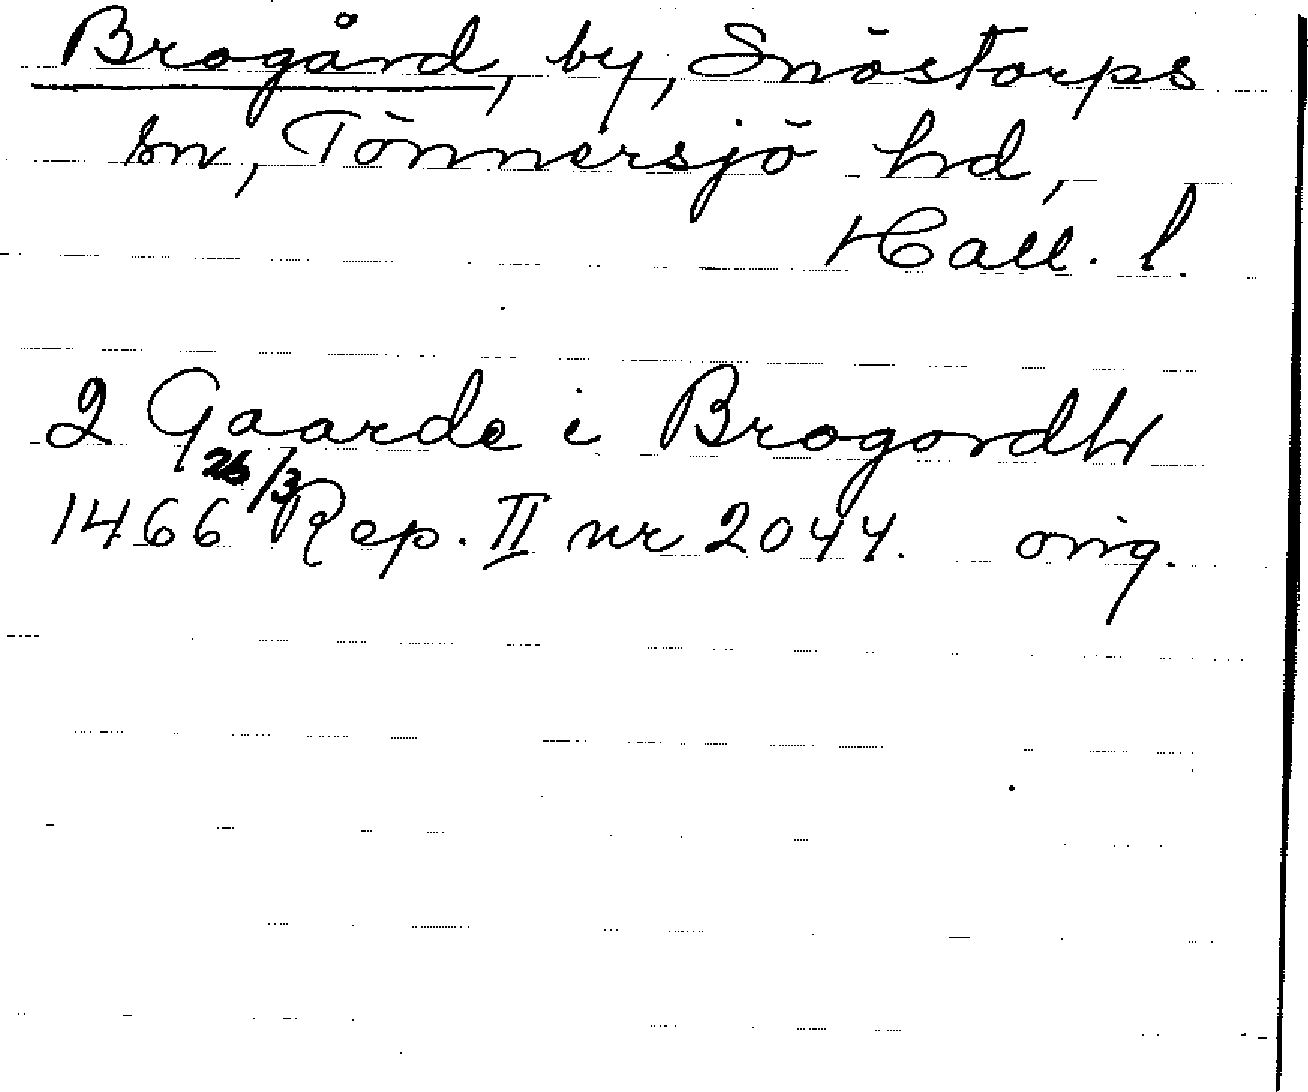 Brogård, by, Snöstorps
sn, Tönnersjö hd,
Hall. l.
2 Gaarde i Brogordh
1466 26/3 Rep. II nr 2044. orig.